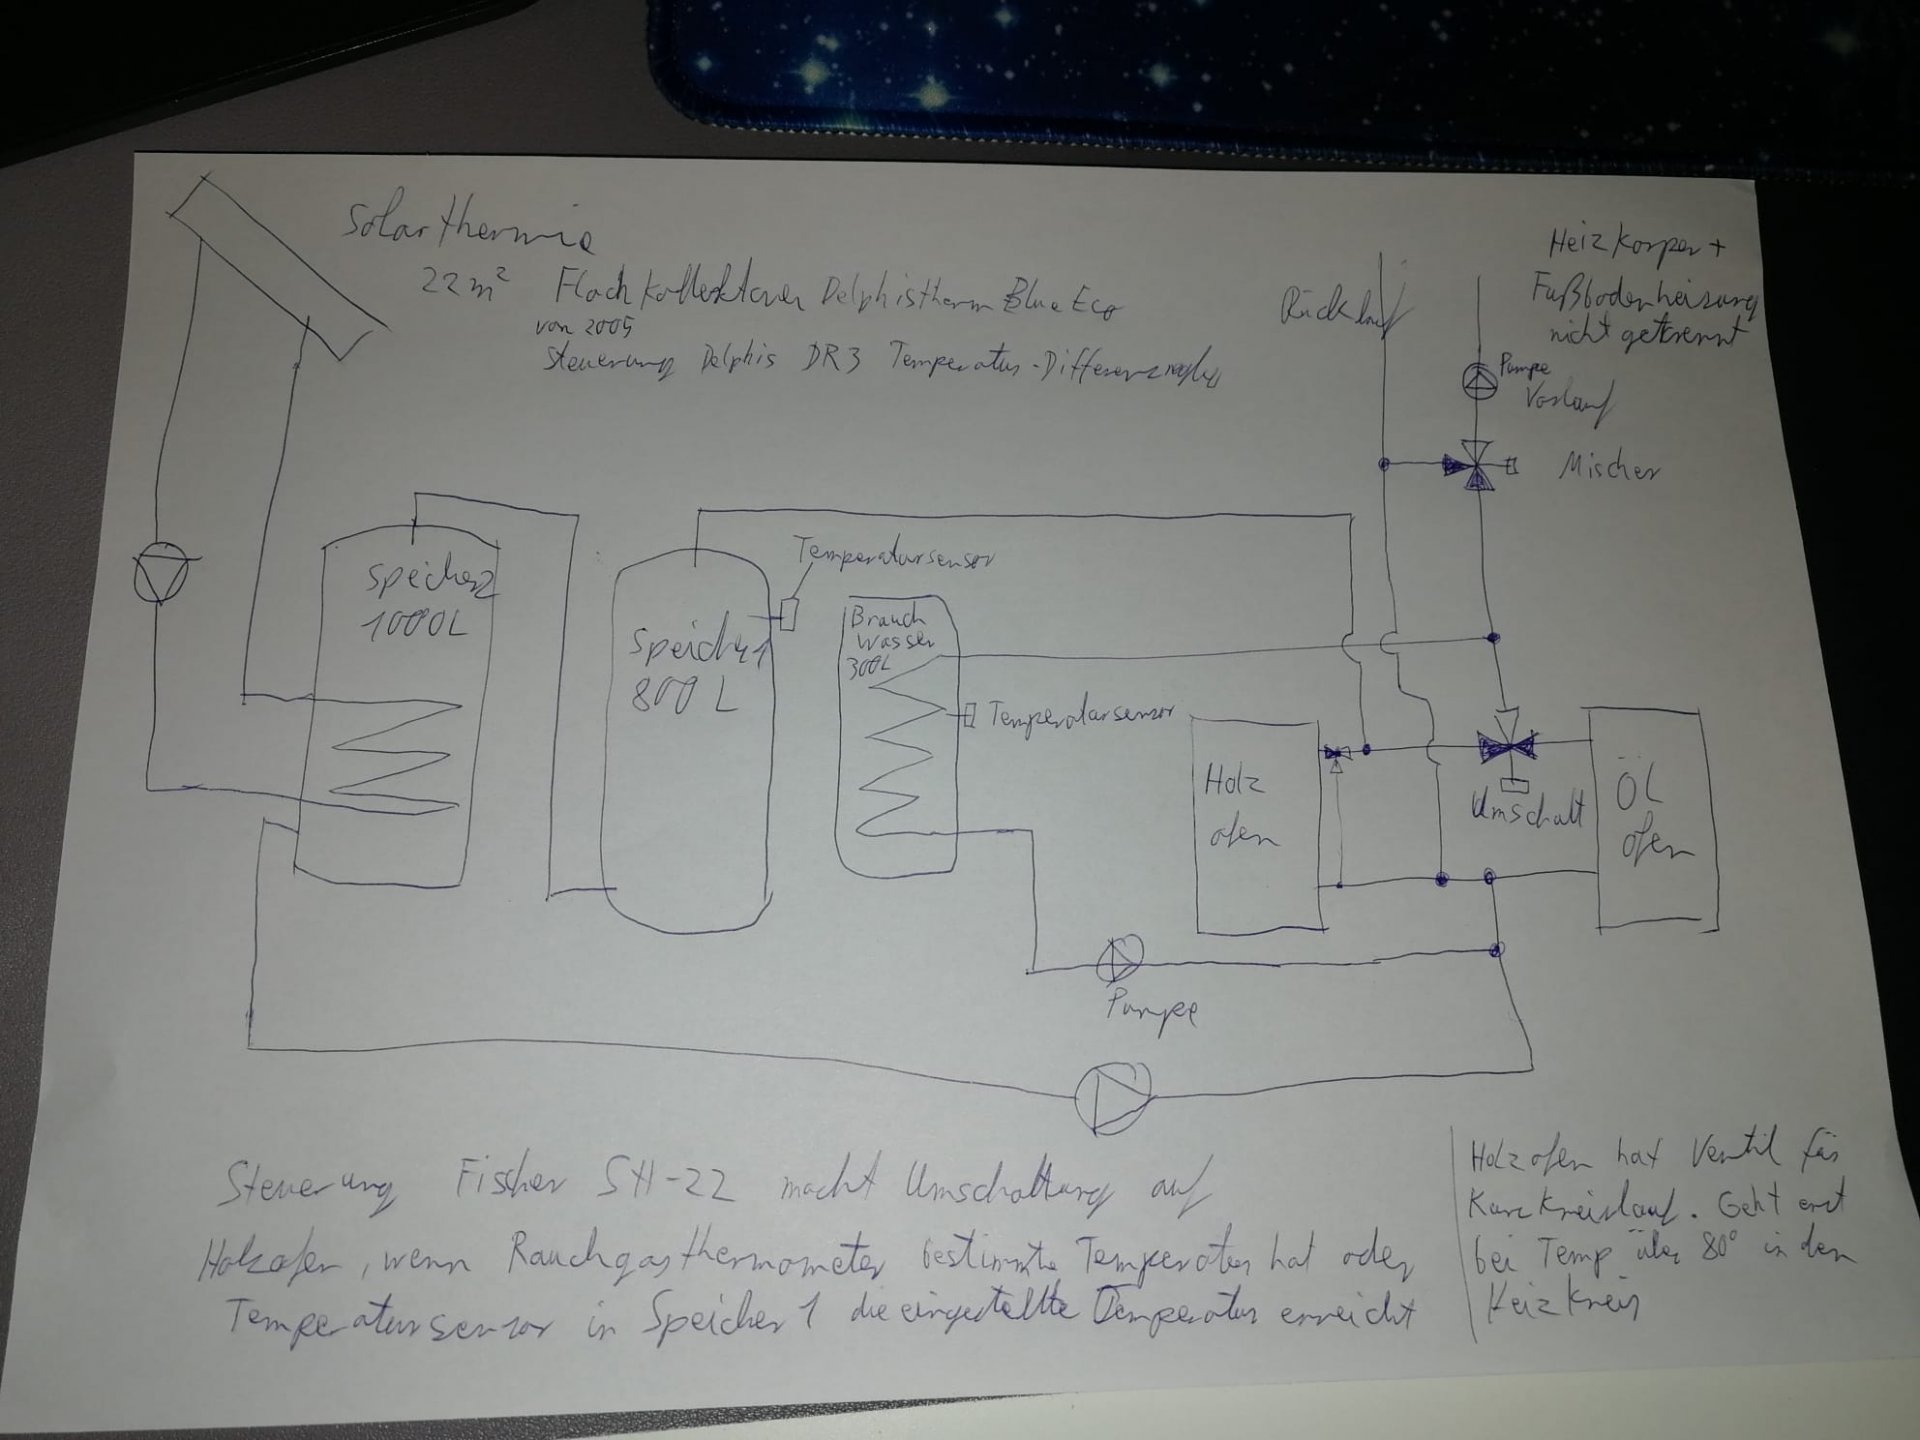 Solarthermie
22m² Flachkollektoren Delphistherm Blue Eco
von 2005
Steuerung Delphis DR3 Temperatur-Differenzregler
Rücklauf
Heizkorper +
Fußbodenheizung
nicht getrennt
Pumpe
Vorlauf
Mischer
Speicher2
1000L
Temperatursensor
Speicher1
800 L
Brauch
Wasser
300L
Temperatursensor
Holz
ofen
Umschalt
ÖL
Ofen
Pumpe
Steuerung Fischer SH-22 macht Umschaltung auf
Holzofen, wenn Rauchgasthermometer bestimmte Temperatur hat oder
Temperatursensor in Speicher 1 die eingestellte Temperatur erreicht
Holzofen hat Ventil für
Kurzkreislauf. Geht erst
bei Temp über 80° in den
Heizkreis